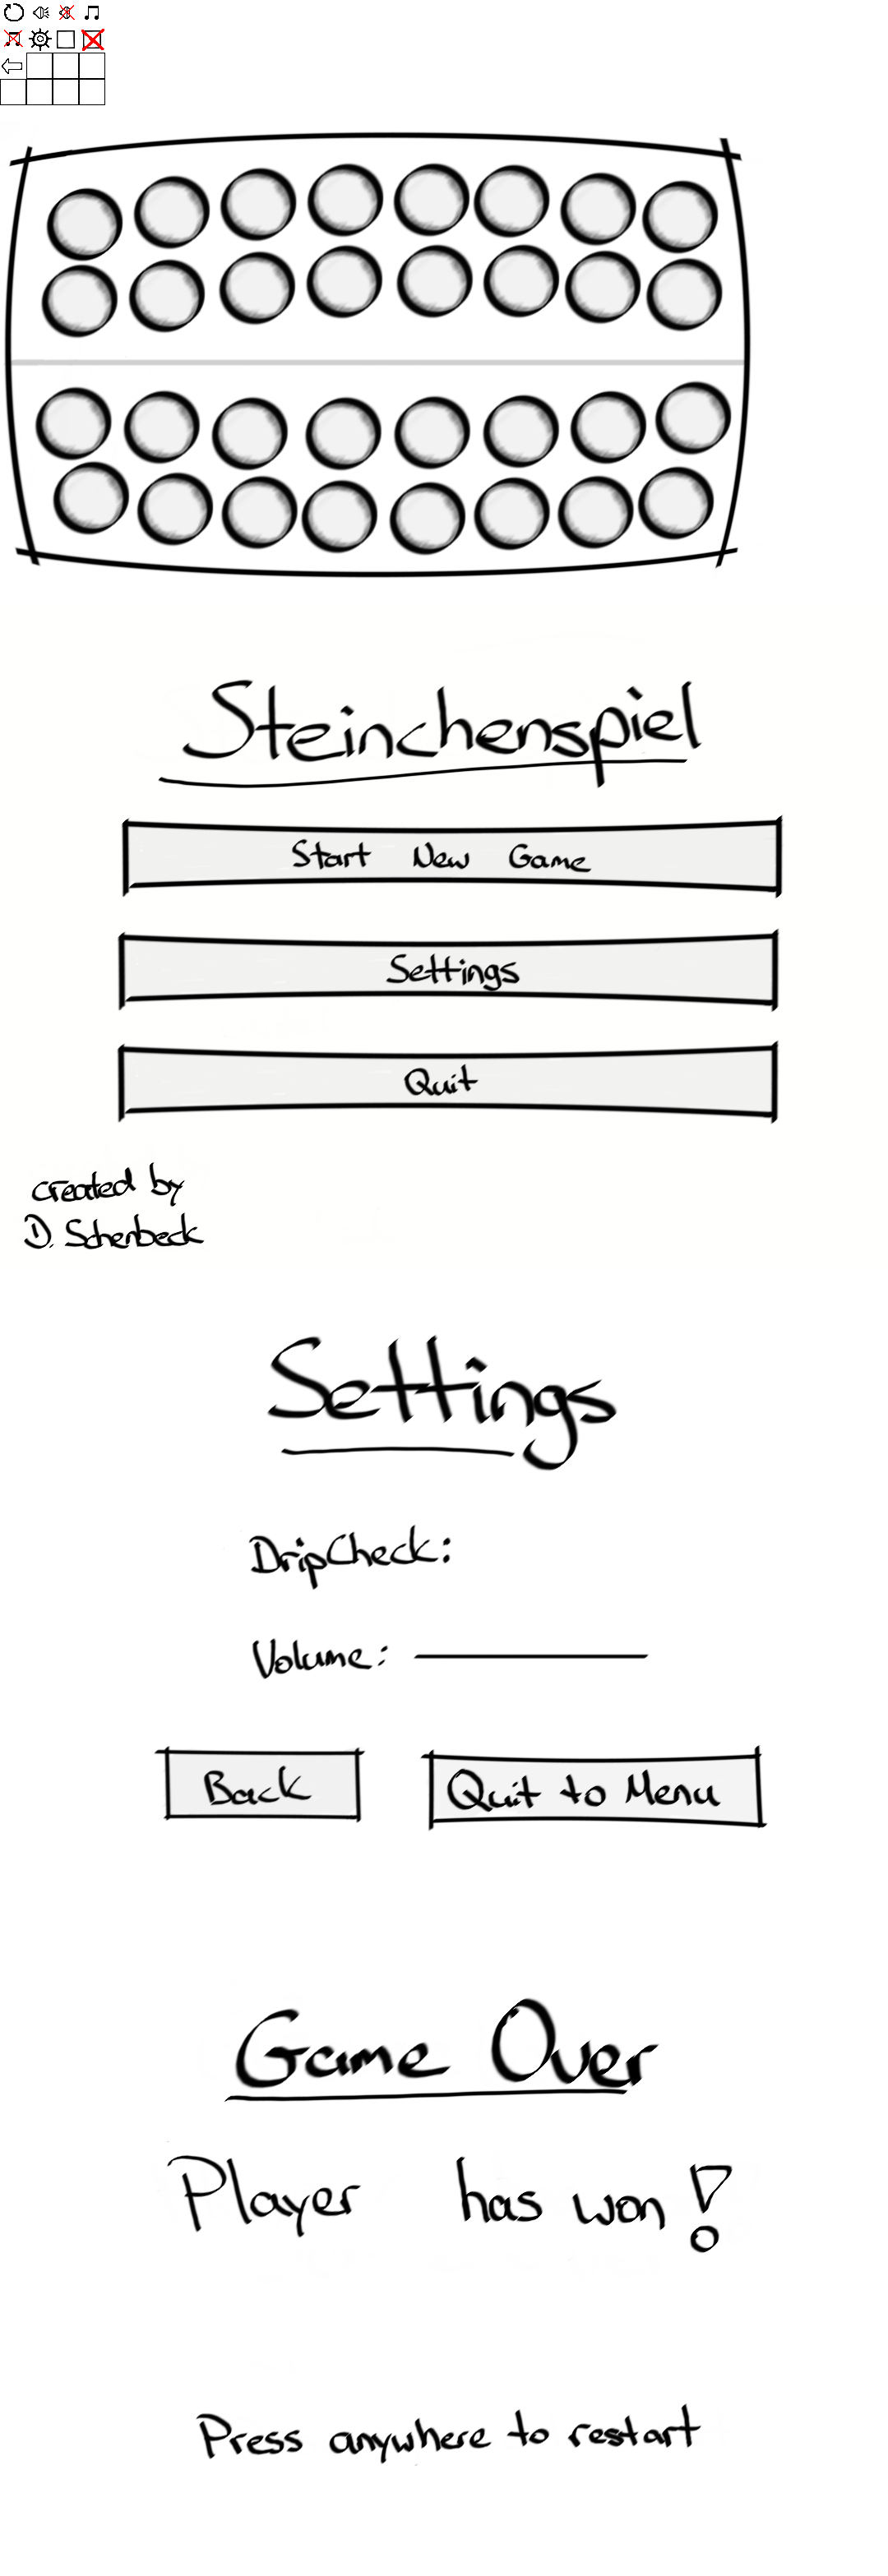 Steinchenspiel
Start New Game
Settings
Quit
created by
D. Schenbeck
Settings
DripCheck:
Volume:
Back
Quit to Menu
Game Over
Player has won!
Press anywhere to restart